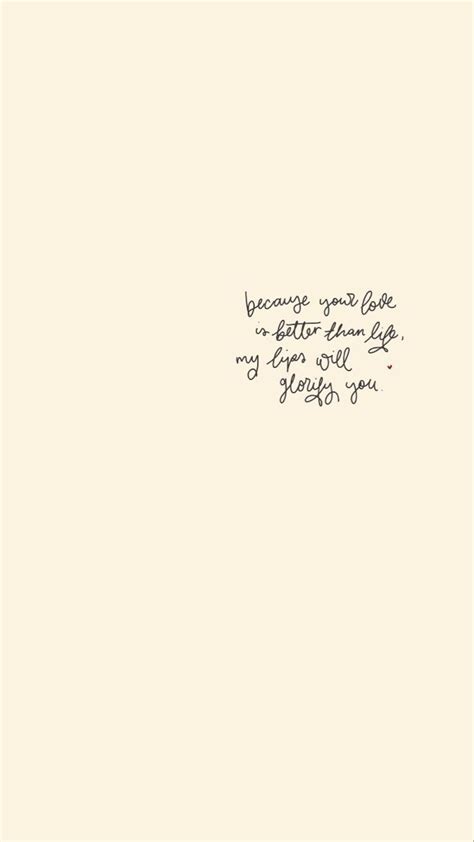 because your love
is better than life,
my lips will
glorify you.